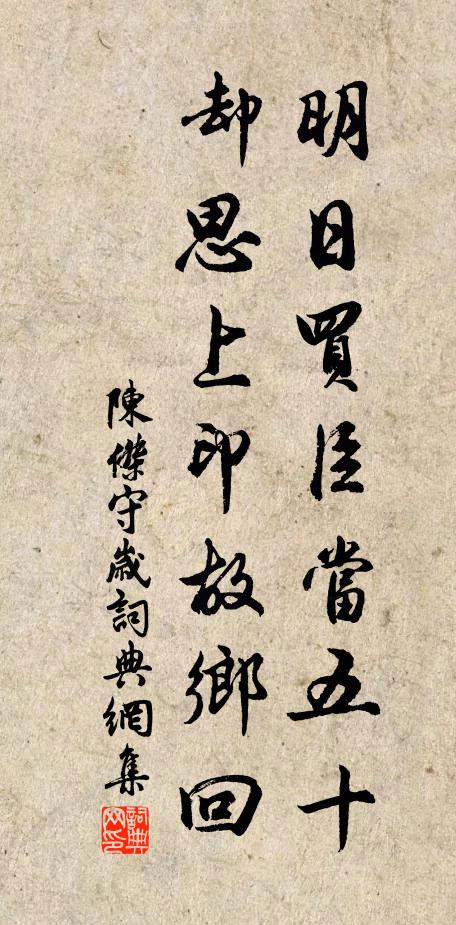 明日買臣當五十
却思上印故鄉回
陳傑守歲詞典網集
詞典网印